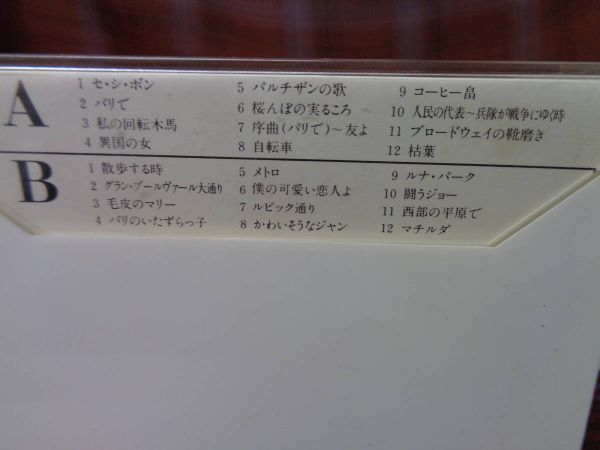 A
1 セ・シ・ボン
2 パリで
3 私の回転木馬
4 異国の女
5 パルチザンの歌
6 桜んぼの実るころ
7 序曲(パリで)〜友よ
8 自転車
9 コーヒー畠
10 人民の代表〜兵隊が戦争にゆく時
11 ブロードウェイの靴磨き
12 枯葉
B
1 散歩する時
2 グラン・ブールヴァール大通り
3 毛皮のマリー
4 パリのいたずらっ子
5 メトロ
6 僕の可愛い恋人よ
7 ルピック通り
8 かわいそうなジャン
9 ルナ・パーク
10 闘うジョー
11 西部の平原で
12 マチルダ